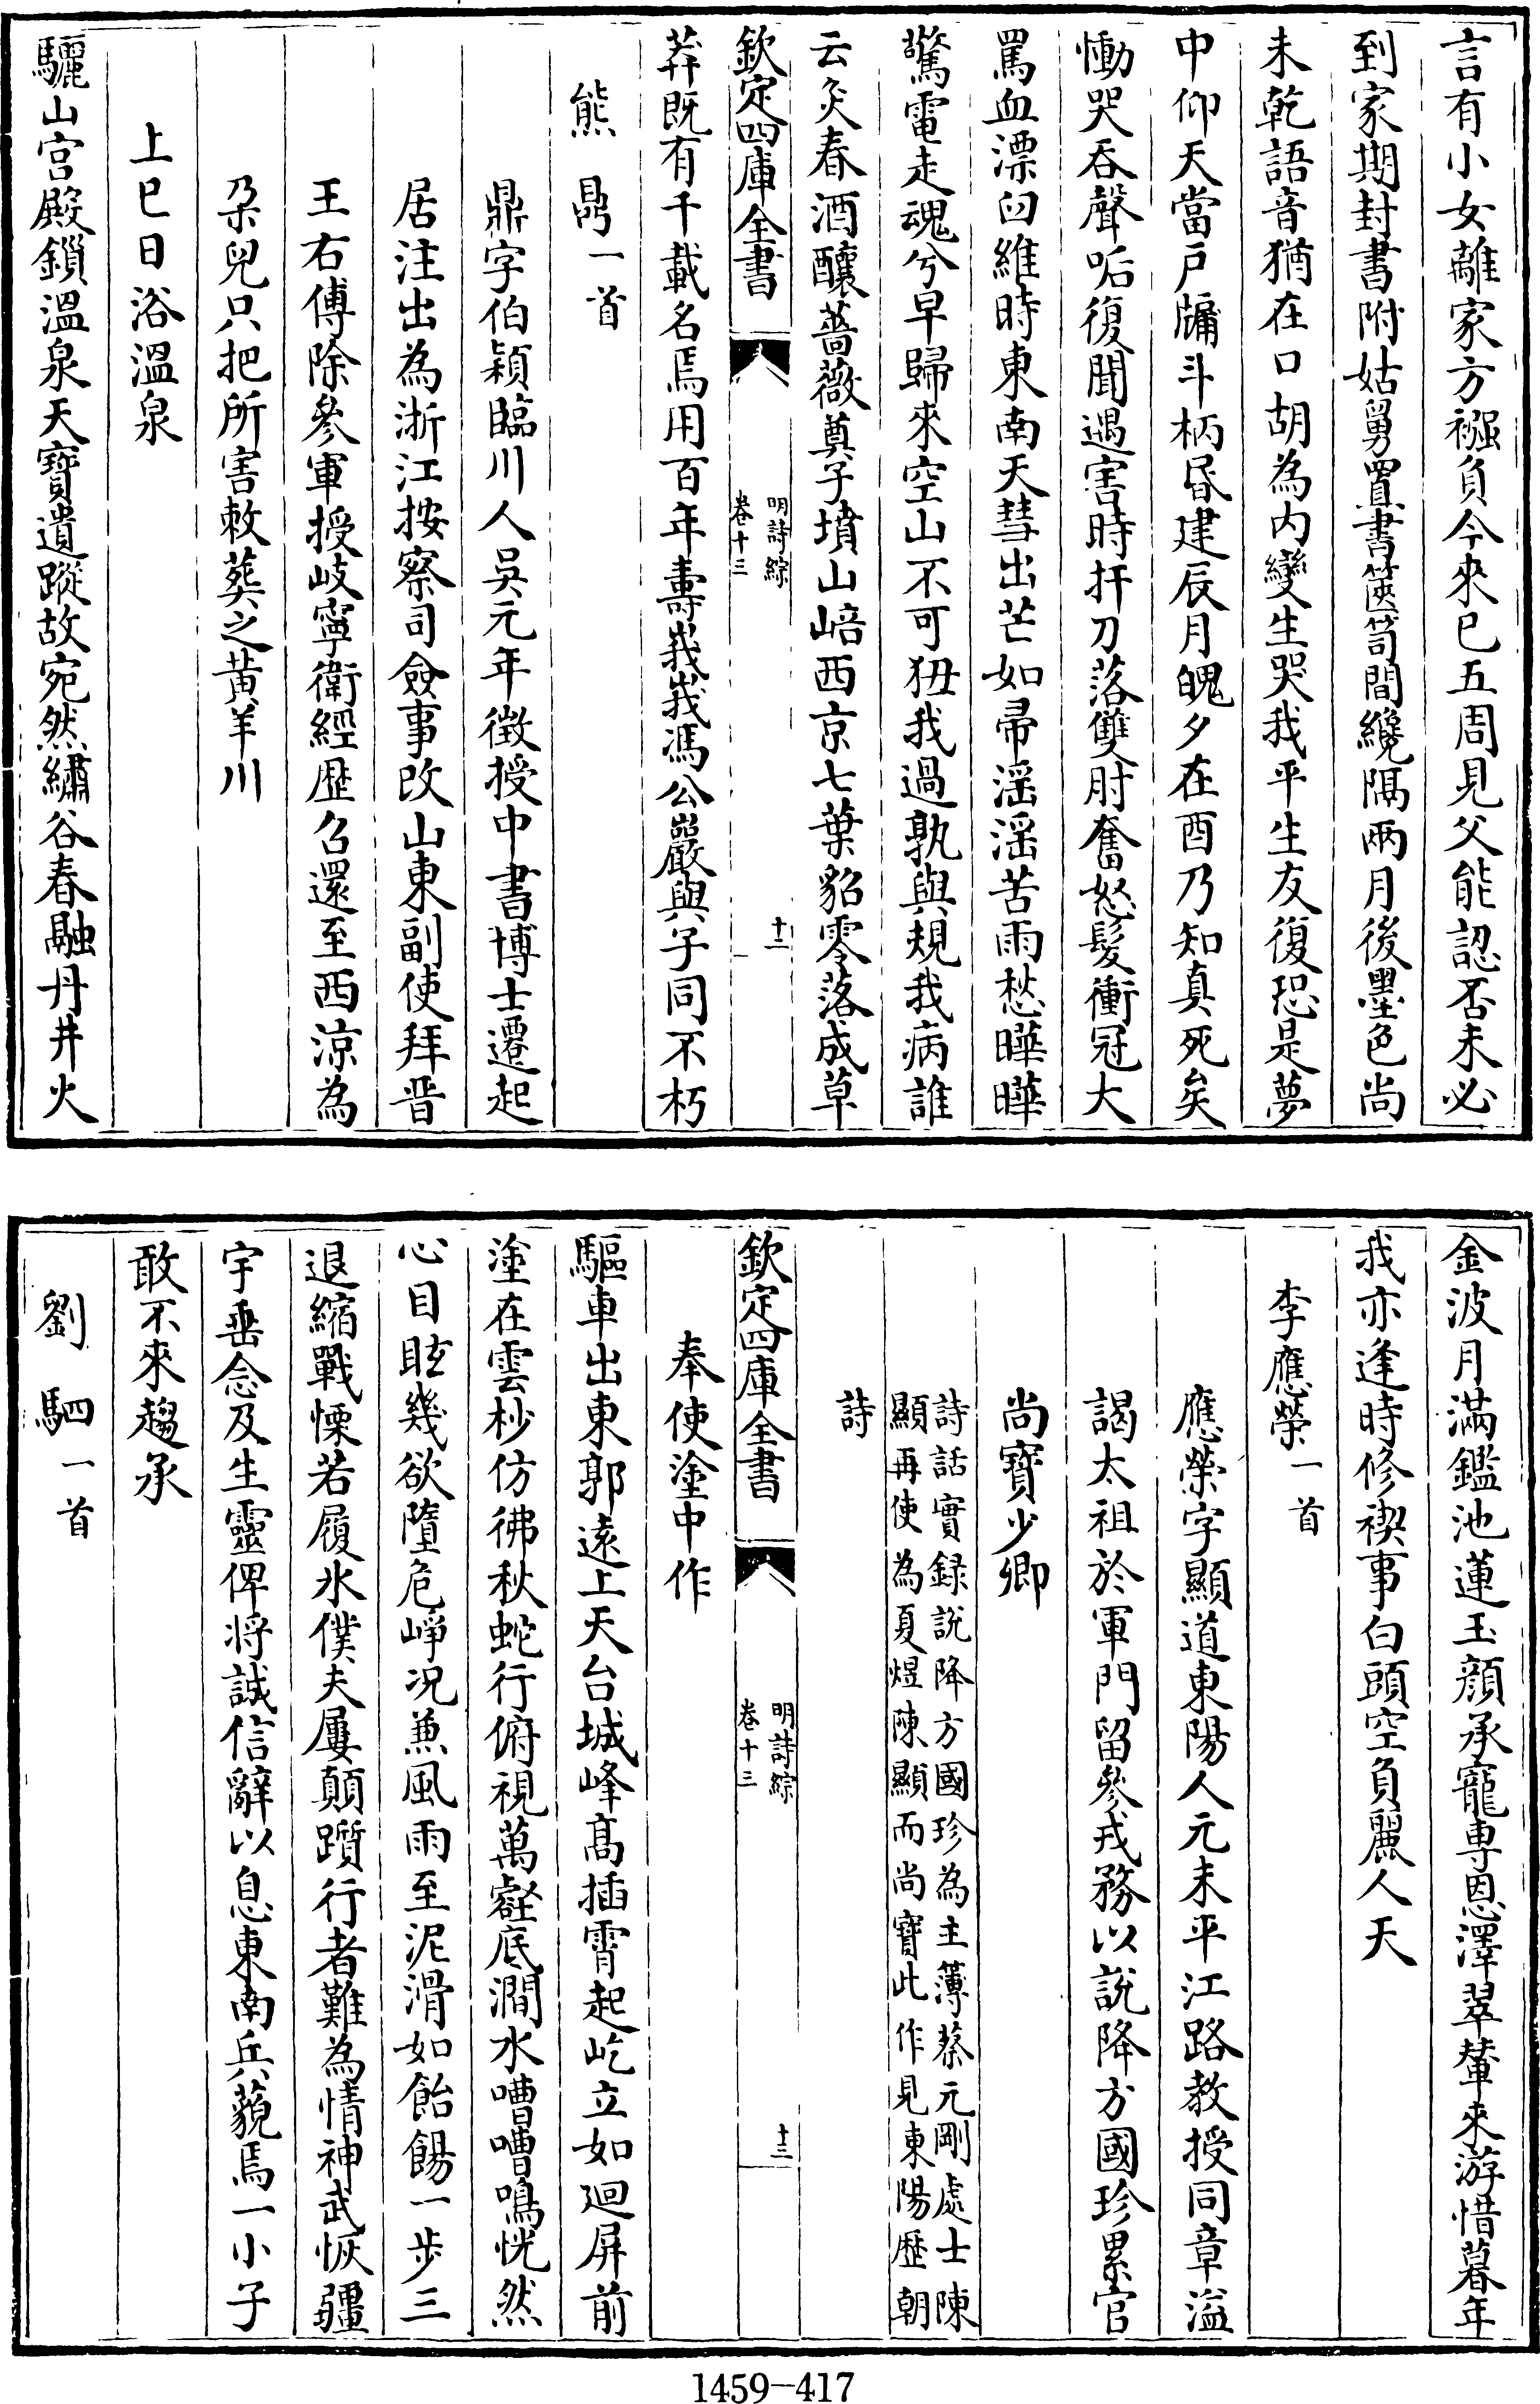 言有小女離家方襁負今來已五周見父能認否未必
到家期封書附姑舅置書篋笥間纔隔兩月後墨色尚
未乾語音猶在口胡為内變生哭我平生友復恐是夢
中仰天當戶牖斗柄昏建辰月魄夕在酉乃知真死矣
慟哭吞聲呦復聞遇害時扞刀落雙肘奮怒髮衝冠大
罵血漂臼維時東南天彗出芒如帚滛滛苦雨愁曄曄
驚電走魂兮早歸來空山不可狃我過孰與規我病誰
云灸春酒釀薔薇奠子墳山㟝西京七葉貂零落成草
欽定四庫全書
明詩綜
卷十三
十二
莽既有千載名焉用百年壽峩峩馮公巖與子同不朽
熊鼎一首
鼎字伯穎臨川人吳元年徴授中書博士遷起
居注出為浙江按察司僉事改山東副使拜晉
王右傅除參軍授岐寧衛經歴召還至西涼為
朶兒只把所害敕葬之黄羊川
上巳日浴溫泉
驪山宮殿鎻溫泉天寶遺蹤故宛然繡谷春融丹井火
金波月滿鑑池蓮玉顔承寵専恩澤翠輦來游惜暮年
我亦逢時修禊事白頭空負麗人天
李應榮一首
應榮字顯道東陽人元末平江路教授同章溢
謁太祖於軍門留參戎務以說降方國珍累官
尚寶少卿
詩話實録說降方國珍為主簿蔡元剛處士陳
顯再使為夏煜陳顯而尚寶此作見東陽歴朝
詩
欽定四庫全書
明詩綜
卷十三
十三
奉使塗中作
驅車出東郭遠上天台城峰髙插霄起屹立如迴屏前
塗在雲杪仿彿秋蛇行俯視萬壑底澗水嘈嘈鳴恍然
心目眩幾欲墮危崢况兼風雨至泥滑如飴餳一步三
退縮戰慄若履氷僕夫屢顛躓行者難為情神武恢疆
宇垂念及生靈俾將誠信辭以息東南兵藐焉一小子
敢不來趨承
劉駟一首
1459-417